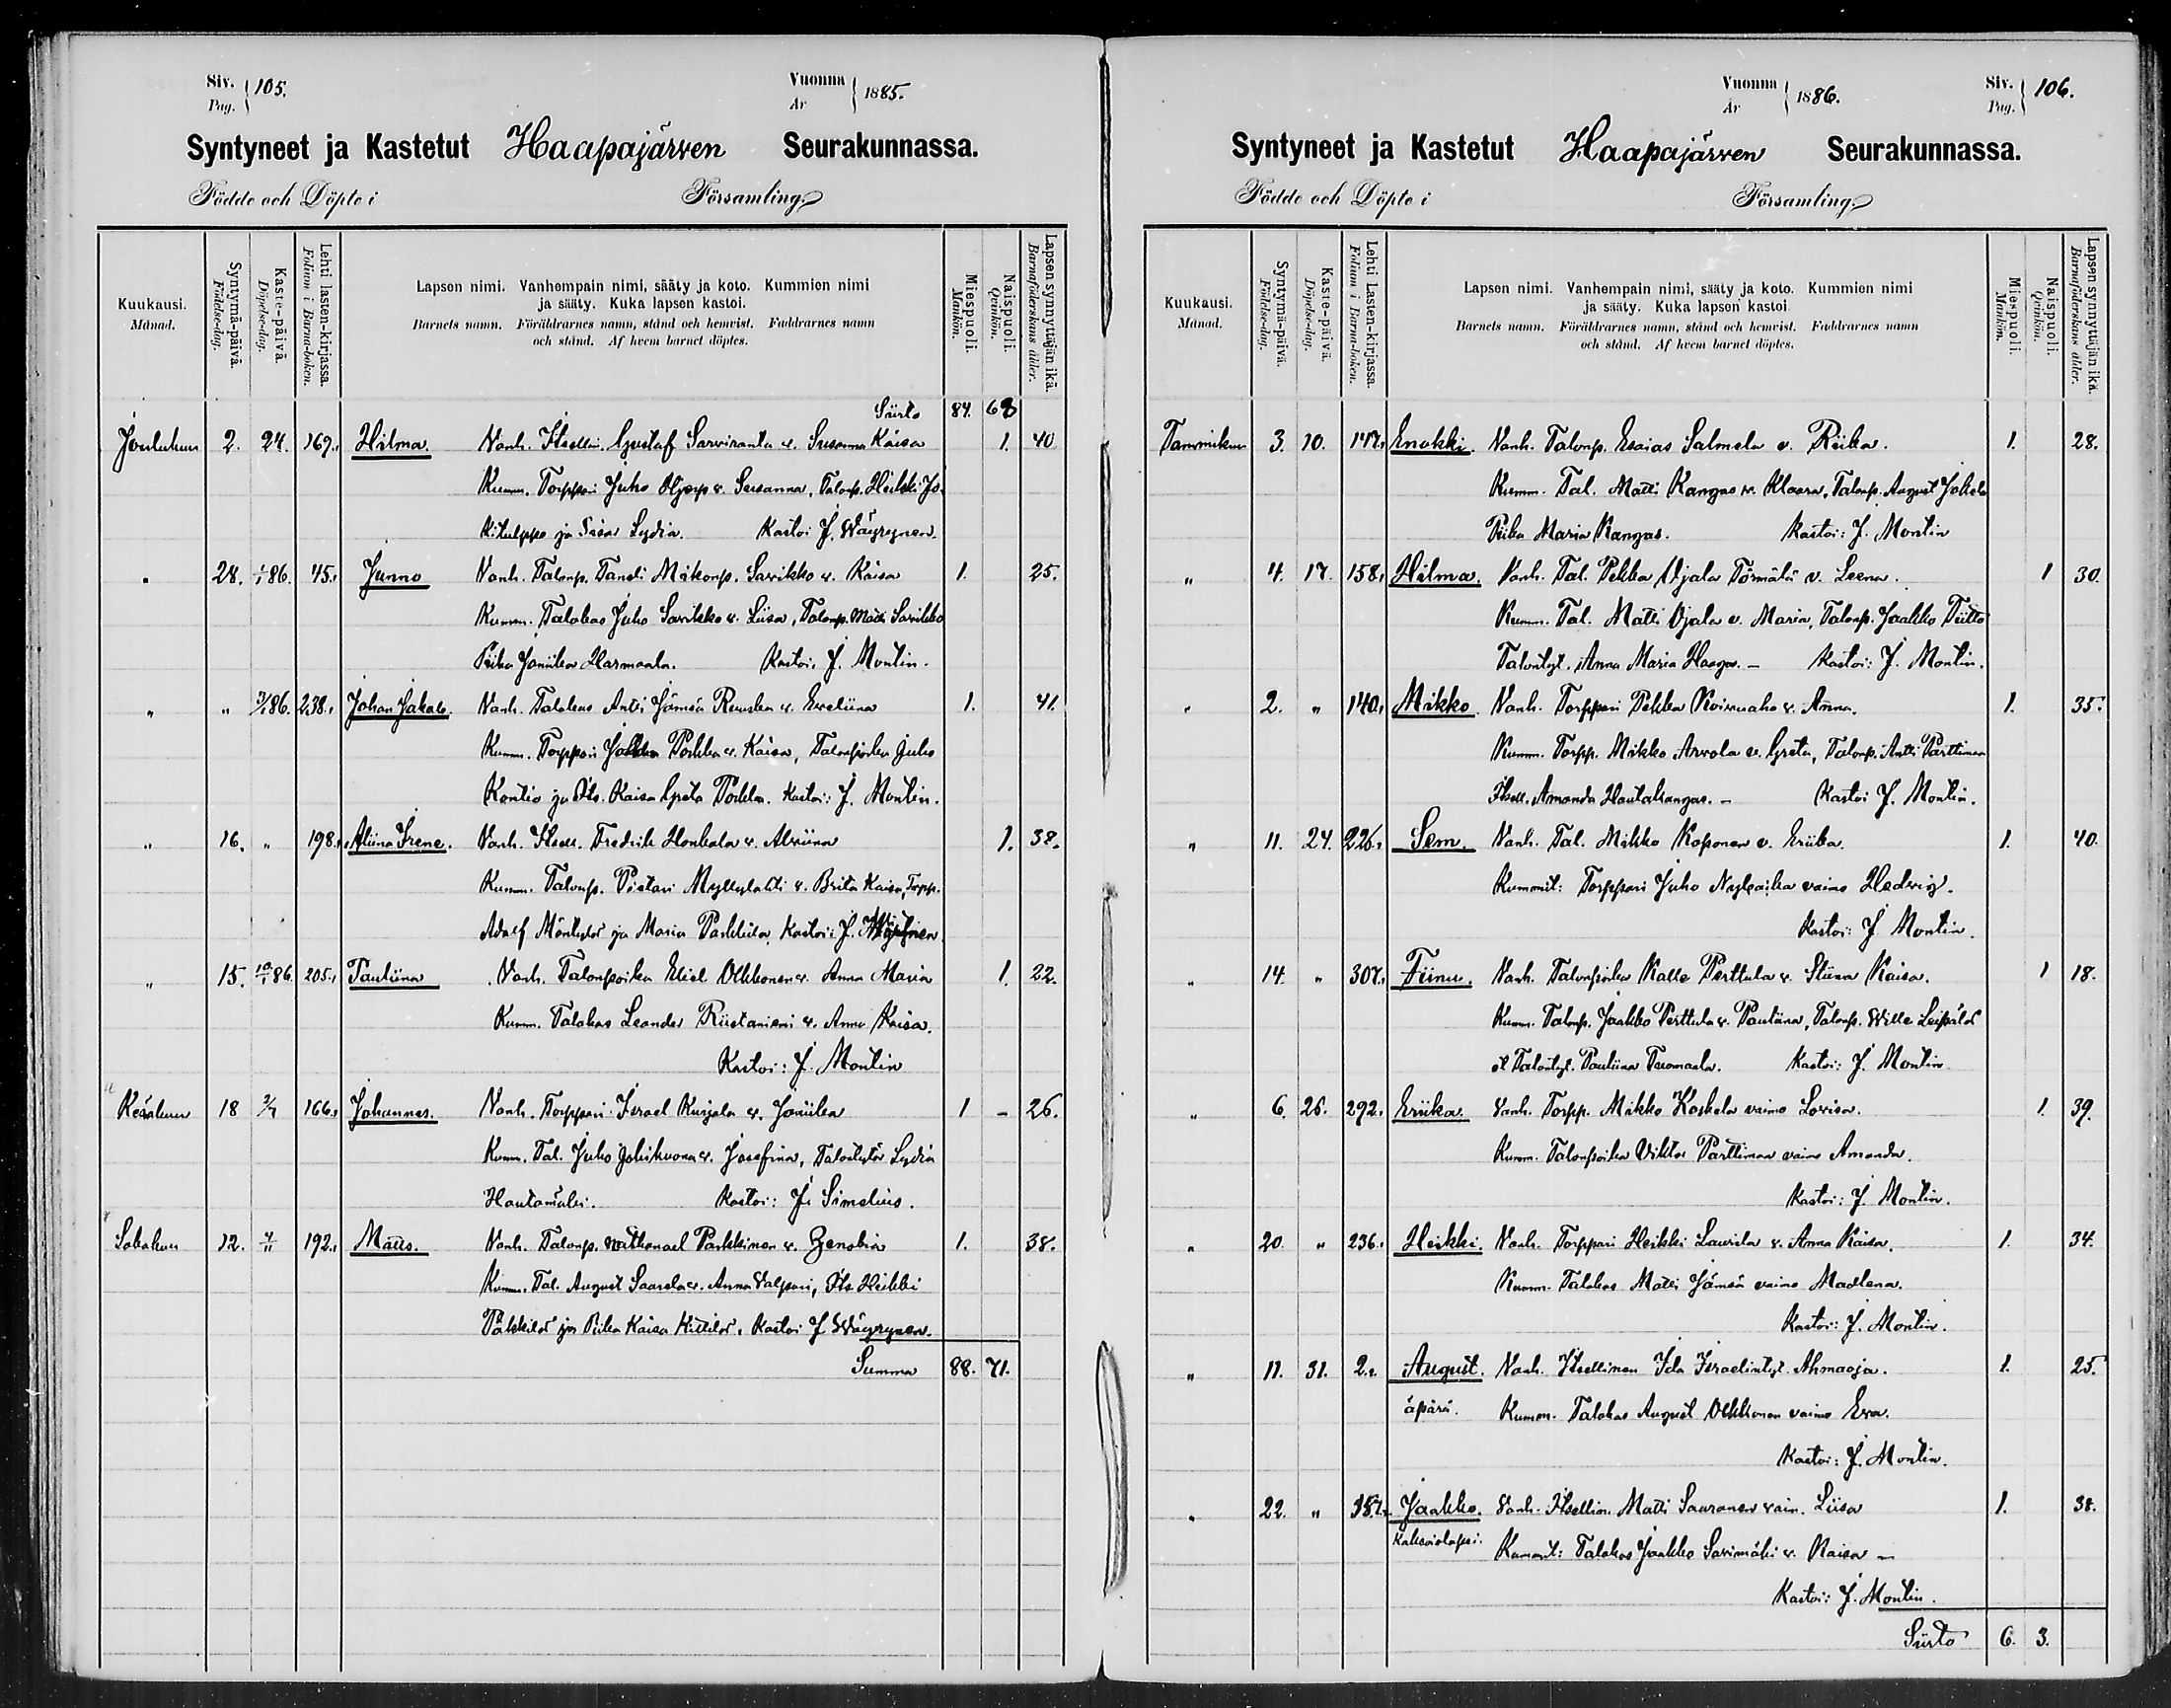 Siv. Pag. 105.
Vuonna År 1885.
Syntyneet ja Kastetut Haapajärven Seurakunnassa.
Födde och Döpte i Församling.
Kuukausi. Månad.
Syntymä-päivä. Födelse-dag.
Kaste-päivä. Döpelse-dag.
Lehti lasten-kirjassa. Folium i Barna-boken.
Lapsen nimi. Vanhempain nimi, sääty ja koto. Kummien nimi
ja sääty. Kuka lapsen kastoi.
Barnets namn. Föräldrarnes namn, stånd och hemvist. Faddrarnes namn
och stånd. Af hvem barnet döptes.
Miespuoli. Mankön.
Naispuoli. Qvinkön.
Lapsen synnyttäjän ikä. Barnaföderskans ålder.
Siirto 84. 68
Joulukuu 2. 24. 169. Hilma. Vanh. Itsellin. Gustaf Sarviranta v. Susanna Kaisa 1. 40
Kumm. Torppari Juho v. Susanna, Talonp. Heikki Jo-
kitulppo ja Lydia. Kastoi J. Wäyrynen.
" 28. 1/1 86. 45. Junno Vanh. Talonp. Taneli Mikonp. Savikko v. Kaisa 1. 25.
Kumm. Talokas Juho Savikko v. Liisa, Talonp. Matti Savikko
Piika Harmaala. Kastoi. J. Montin.
" " 3/1 86. 238. Johan Jakob. Vanh. Talokas Antti Jämsä v. Eveliina 1. 41.
Kumm. Torppari v. Kaisa, Talonpoika Juho
Kontio ja Its. Kaisa Greta. Kastoi: J. Montin.
" 16. " 198. Aliina Irene. Vanh. Itsell. Fredrik Honkala v. 1. 38.
Kumm. Talonp. Pietari Myllylahti v. Brita Kaisa, Torpp.
Adolf ja Maria Parkkila, Kastoi: J.
" 15. 10/1 86 205. Pauliina Vanh. Talonpoika Eliel Olkkonen v. Anna Maria 1. 22.
Kumm. Talokas Leander Ristaniemi v. Anna Kaisa.
Kastoi: J. Montin
Kesäkuu 18 166. Johannes. Vanh. Torppari Israel Kurjala v. 1 - 26.
Kumm. Tal. Juho Jokikuona v. Josefina, Talontytär Lydia
Hautamäki. Kastoi: J. Simelius.
Lokakuu 12. 4/11 192. Matts. Vanh. Talonp. Nathanael Parkkinen v. Zenobia 1. 38.
Kumm. Tal. August Saarela v. Anna Valpuri, Its Heikki
ja Piika Kaisa. Kastoi J Wäyrynen.
Summa 88. 71.
Vuonna År 1886.
Siv. Pag. 106.
Syntyneet ja Kastetut Haapajärven Seurakunnassa.
Födde och Döpte i Församling.
Kuukausi. Månad.
Syntymä-päivä. Födelse-dag.
Kaste-päivä. Döpelse-dag.
Lehti Lasten-kirjassa. Folium i Barna-boken.
Lapsen nimi. Vanhempain nimi, sääty ja koto. Kummien nimi
ja sääty. Kuka lapsen kastoi.
Barnets namn. Föräldrarnes namn, stånd och hemvist. Faddrarnes namn
och stånd. Af hvem barnet döptes.
Miespuoli. Mankön.
Naispuoli. Qvinkön.
Lapsen synnyttäjän ikä. Barnaföderskans ålder.
Tammikuu 3. 10. 147. Enokki. Vanh. Talonp. Esaias Salmela v. Riika. 1. 28.
Kumm. Tal. Matti Kangas v. Klaara, Talonp. August Jokela
Piika Maria Kangas. Kastoi: J. Montin
" 4. 17. 158. Hilma. Vanh. Tal. Pekka Ojala Törmälä v. Leena. 1 30.
Kumm. Tal. Matti Ojala v. Maria, Talonp. Jaakko Tiitto
Talontyt. Anna Maria Haaga. - Kastoi: J. Montin.
" 2. " 140. Mikko. Vanh. Torppari Pekka Koivuaho v. Anna. 1. 35.
Kumm. Torpp. Mikko Arvola v. Greta, Talonp. Antti Parttimaa
Itsell. Amanda Hautakangas. - Kastoi J. Montin.
" 11. 24. 226. Sem. Vanh. Tal. Mikko Koponen v. Eriika. 1. 40.
Kummit: Torppari Juho vaimo Hedvig.
Kastoi: J. Montin.
" 14. " 307. Fiinu. Vanh. Talonpoika Kalle Perttula v. Stiina Kaisa. 1 18.
Kumm. Talonp. Jaakko Perttula v. Pauliina, Talonp. Wille Leipälä
Talontyt. Pauliina Tuomaala. Kastoi: J. Montin
" 6. 26. 292. Eriika. Vanh. Torpp. Mikko Koskela vaimo Lovisa. 1. 39.
Kumm. Talonpoika Viktor Parttimaa vaimo Amanda.
Kastoi: J. Montin.
" 20. " 236. Heikki. Vanh. Torppari Heikki Laurila v. Anna Kaisa. 1. 34.
Kumm. Talokas Matti Jämsä vaimo Madlena.
Kastoi: J. Montin.
" 11. 31. 2. August. Vanh. Itsellinen Ida Israelintyt. Ahmaoja. 1. 25.
äpärä. Kumm. Talokas August Olkkonen vaimo Eva.
Kastoi: J. Montin.
" 22. " 357. Jaakko. Vanh. Itsellin. Matti Sauranen vaim. Liisa 1. 38.
Kaksoislapsi. Kummit: Talokas Jaakko Savimäki v. Kaisa -
Kastoi: J. Montin.
Siirto 6. 3.